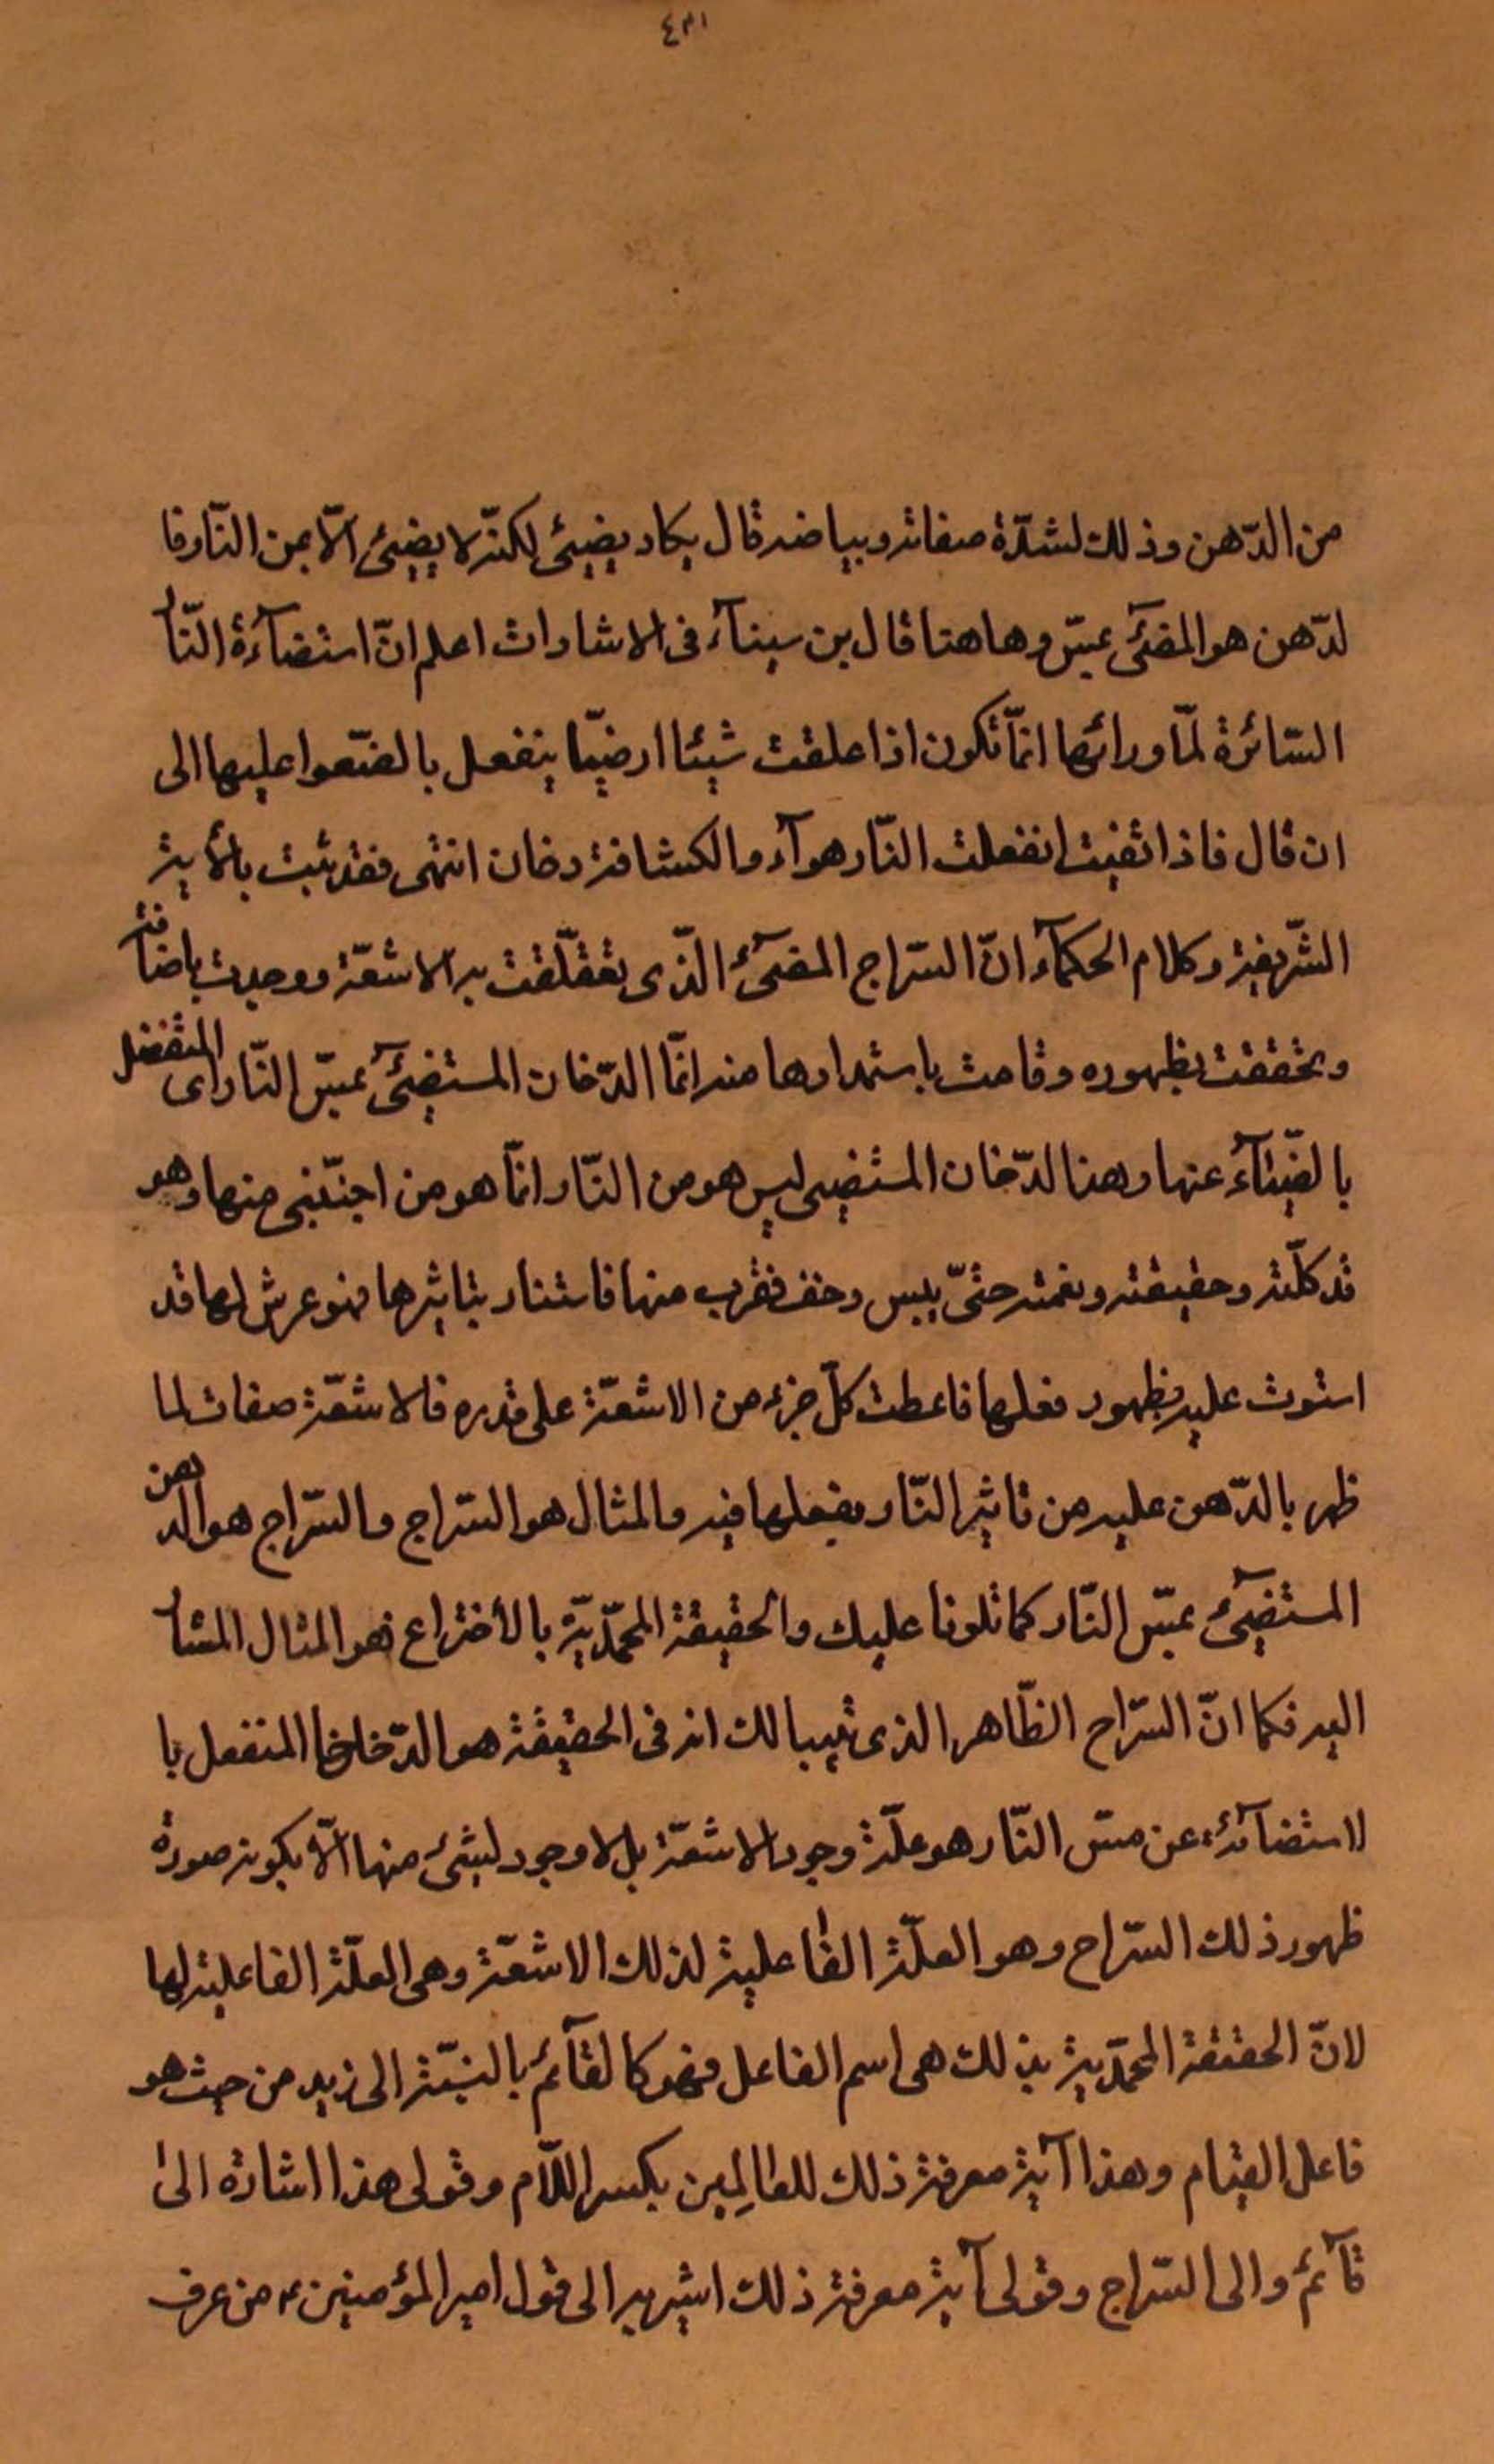 ٤٣١
من الدّهن وذلك لشدّة صفائه وبياضه قال يكاد يضيئ لكنّه لا يضيئ الّا بمن النّار فا
لدّهن هو المضئ بمسّ وهاهنا قال بن سينآء فى الاشارات اعلم انّ استضآءة النّار
السّائرة لمّا ورائها انمّا تكون اذا علقت شيئا ارضيّا ينفعل بالضّوء عليها الى
ان قال فاذا انفعلت النّار هوآء والكثافة دخان انتهى فقد ثبت بالأية
الشّريفة وكلام الحكمآء انّ السّراج المضئ الّذى تعلّقت به الاشعّة ووجدت باضآفة
وتحققت بظهوره وقامت باستمدادها منه انمّا الدّخان المستضيئ بمسّ النّار اى المنفعل
بالضّيآء عنها وهذا لدّخان المستضيى ليس هو من النّار وانمّا هو من اجنّبى منها وهو
قد كلّته وحقيقته ونعمته حتّى يبس وخف فقرب منها فاستنار بتاثيرها فهو عرش لها قد
استوت عليه بظهور فعلها فاعطت كلّ جزء من الاشعّة على قدره فالاشعّة صفات لما
ظهر بالدّهن عليه من تاثير النّار بفعلها فيه والمثال هو السّراج والسّراج هو الدهن
المستضيئ بمسّ النّار كما تلونا عليك والحقيقة المحمّديّة بالأختراع فهو المثال المشار
اليه فكما انّ السّراج الظّاهر الذى انه فى الحقيقة هو الدّخان المنفعل با
لاستضآئة عن مسّ النّار هو علّة وجود الاشعّة بل لا وجود لشئ منها الّا بكونه صورة
ظهور ذلك السّراج وهو العلّة الفاعلية لذلك الاشعّة وهى العلّة الفاعلية لها
لانّ الحقيقة المحمّدية بذلك هى اسم الفاعل فهو كالقآئم بالنسبّة الى زيد من حيث هو
فاعل القيام وهذا آية معرفة ذلك للعالِمين بكسر اللّام وقولى هذا اشارة الى
قآئم والى السّراج وقولى آية معرفة ذلك اشير به الى قول امير المؤمنين ع من عرف